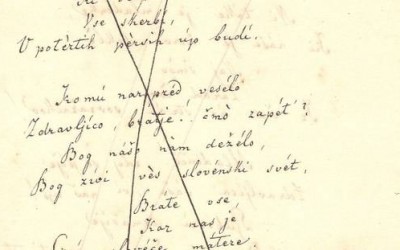 Vse skerbí,
V potèrtih pèrsih úp budí.
Komú narpréd vesélo
Zdravljíco, bratje! čmò zapét'?
Bog nášo nàm deželo,
Bog živi vès slovénski svét,
Bráte vse,
Kar nas je,
mátere.